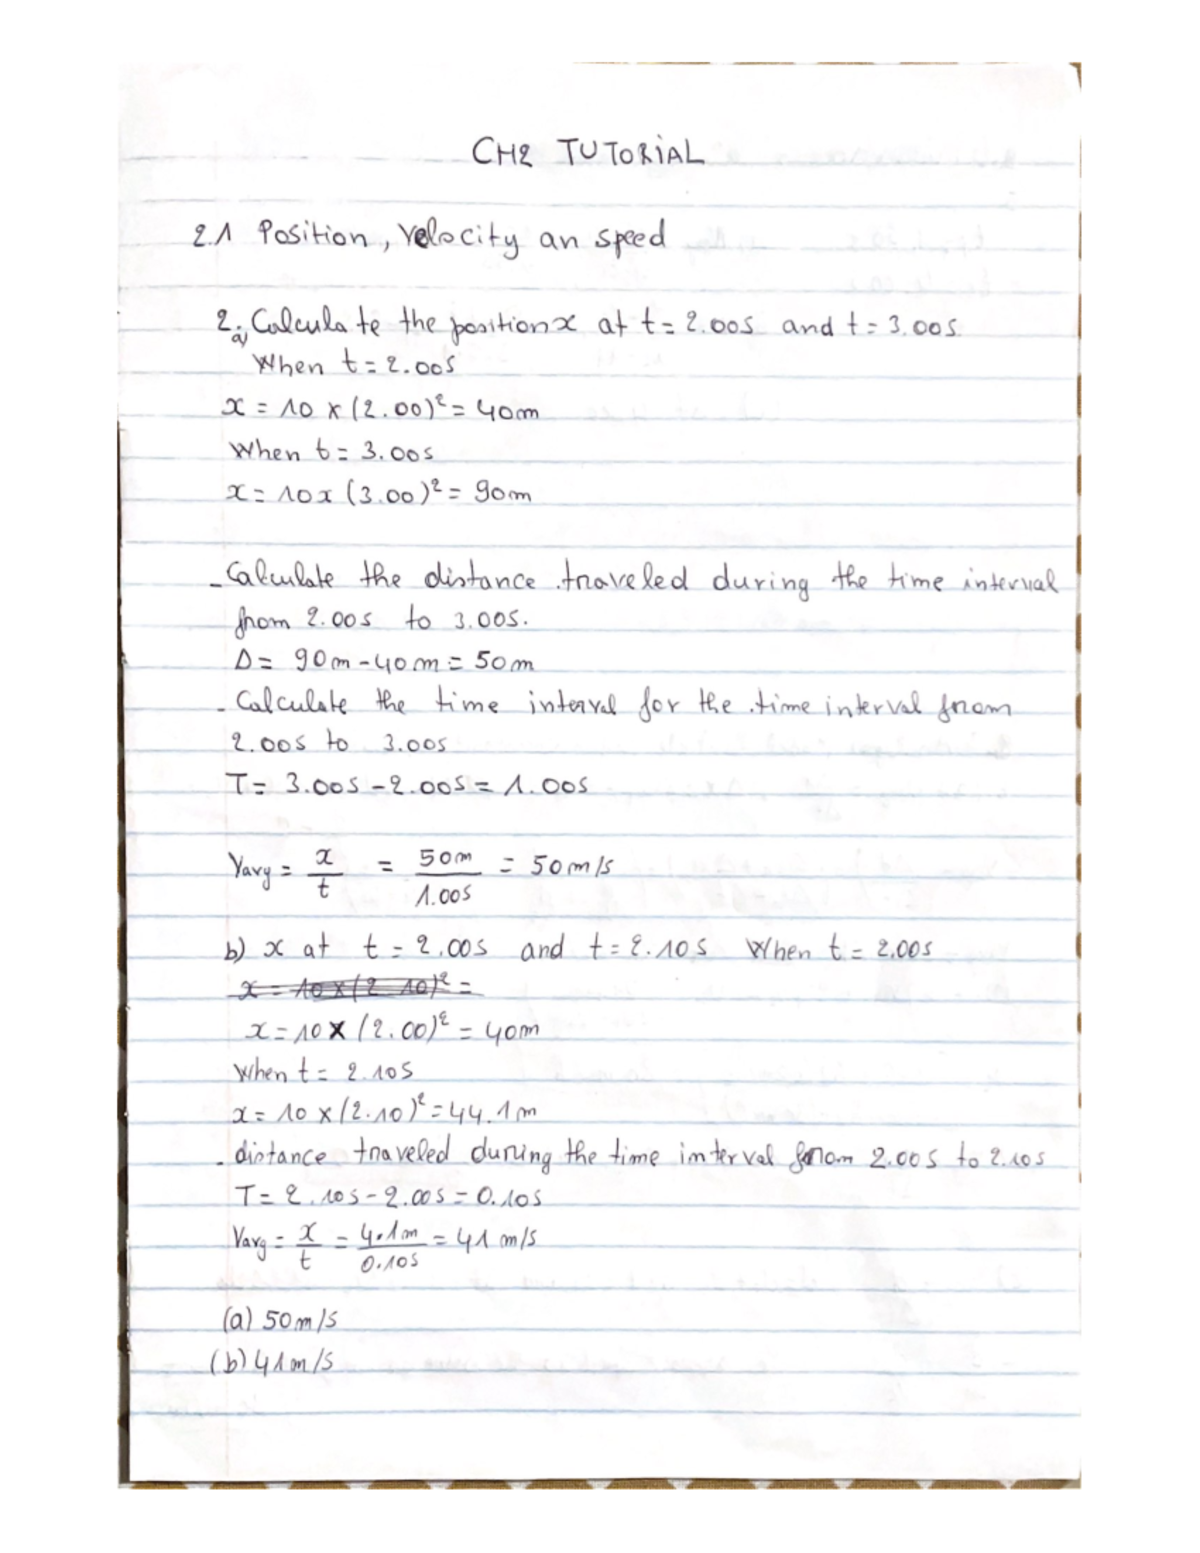 CH2 TUTORIAL
2.1 Position, Velocity an speed
2. Calculate the position x at t = 2.00s and t = 3.00s.
a) When t = 2.00s
x = 10 x (2.00)² = 40m
When t = 3.00s
x = 10 x (3.00)² = 90m
- Calculate the distance traveled during the time interval
from 2.00s to 3.00s.
D = 90m - 40m = 50m
- Calculate the time interval for the time interval from
2.00s to 3.00s
T = 3.00s - 2.00s = 1.00s
Vavg = x/t = 50m/1.00s = 50m/s
b) x at t = 2.00s and t = 2.10s When t = 2.00s
x = 10 x (2.10)² =
x = 10 x (2.00)² = 40m
When t = 2.10s
x = 10 x (2.10)² = 44.1m
- distance traveled during the time interval from 2.00s to 2.10s
T = 2.10s - 2.00s = 0.10s
Vavg = x/t = 4.1m/0.10s = 41 m/s
(a) 50m/s
(b) 41m/s